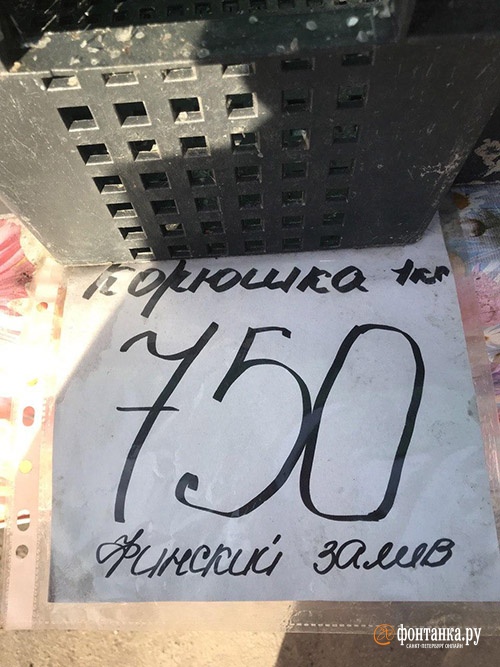 Корюшка 1кг
750
Финский залив
фонтанка.ру
САНКТ-ПЕТЕРБУРГ ОНЛАЙН